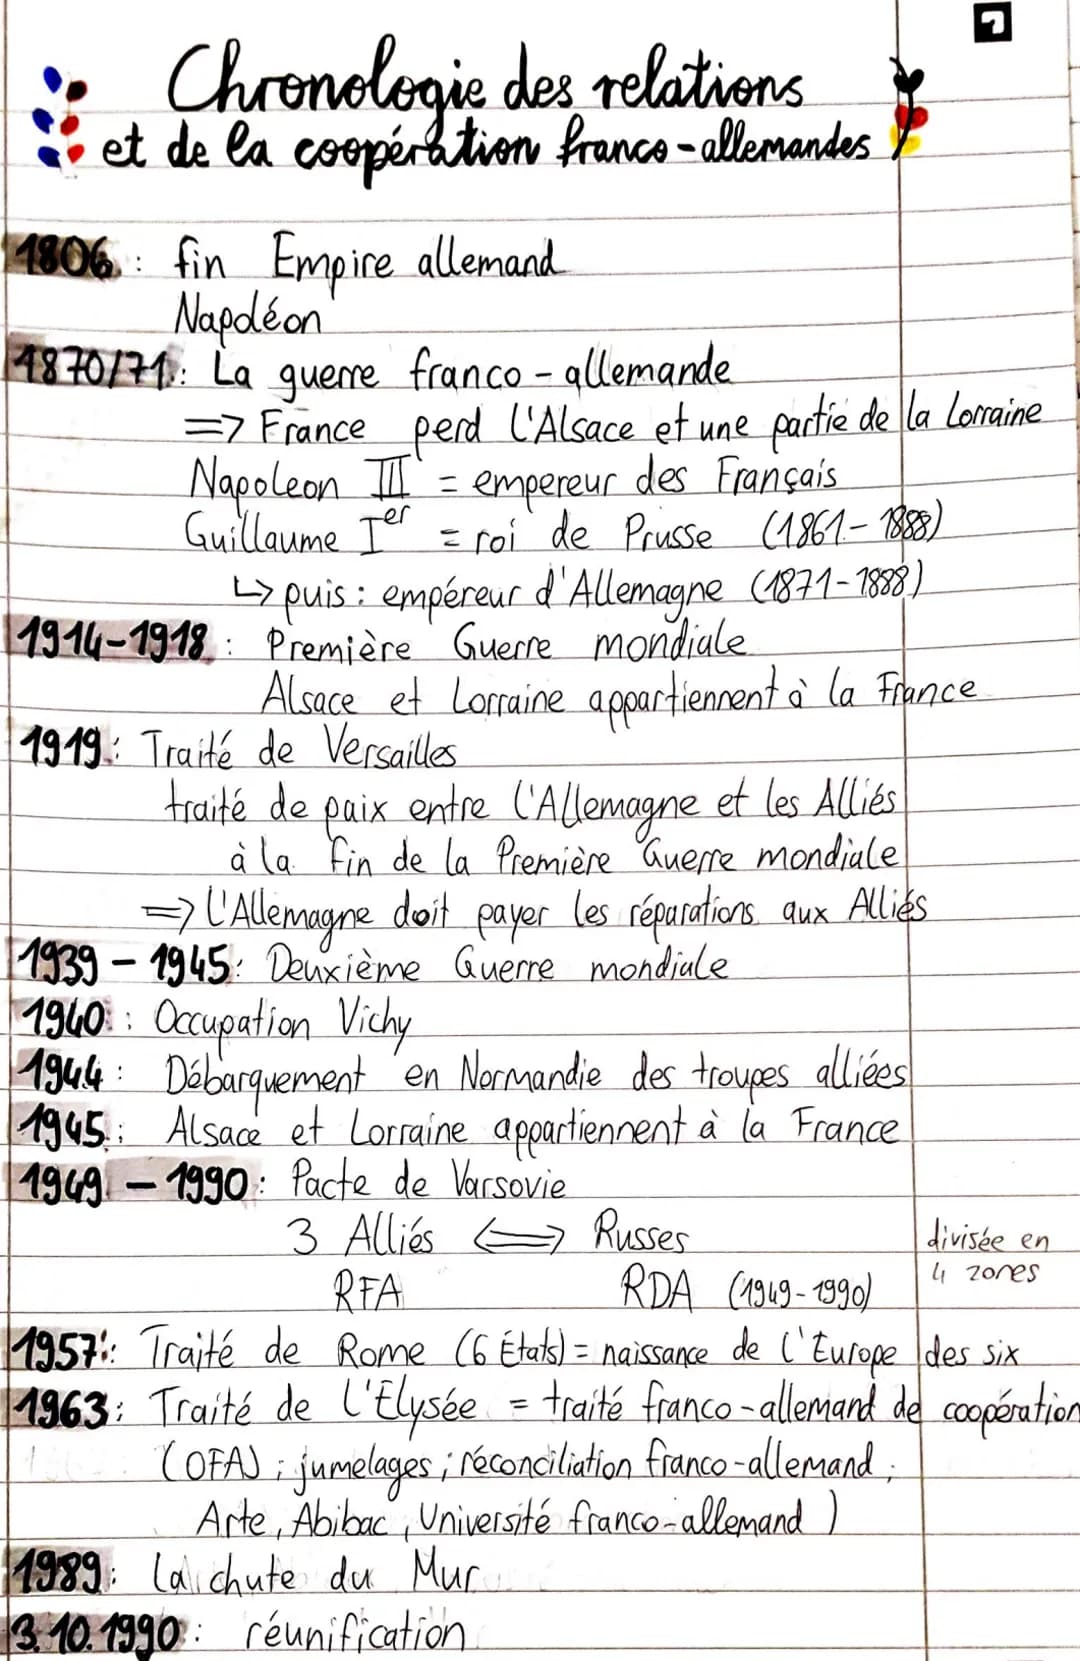 Chronologie des relations
et de la coopération franco-allemandes
1806: fin Empire allemand
Napoléon
1870/71: La guerre franco-allemande
=> France perd l'Alsace et une partie de la Lorraine
Napoleon III = empereur des Français
Guillaume Ier = roi de Prusse (1861-1888)
↳ puis: empéreur d'Allemagne (1871-1888)
1914-1918: Première Guerre mondiale
Alsace et Lorraine appartiennent à la France
1919: Traité de Versailles
traité de paix entre l'Allemagne et les Alliés
à la fin de la Première Guerre mondiale
=> L'Allemagne doit payer les réparations aux Alliés
1939 - 1945: Deuxième Guerre mondiale
1940: Occupation Vichy
1944: Débarquement en Normandie des troupes alliées
1945: Alsace et Lorraine appartiennent à la France
1949 - 1990: Pacte de Varsovie
3 Alliés <=> Russes
divisée en
4 zones
RFA RDA (1949-1990)
1957: Traité de Rome (6 États) = naissance de l'Europe des six
1963: Traité de l'Elysée = traité franco-allemand de coopération
(OFAJ; jumelages; réconciliation franco-allemand;
Arte, Abibac, Université franco-allemand)
1989: la chute du Mur
3.10.1990: réunification